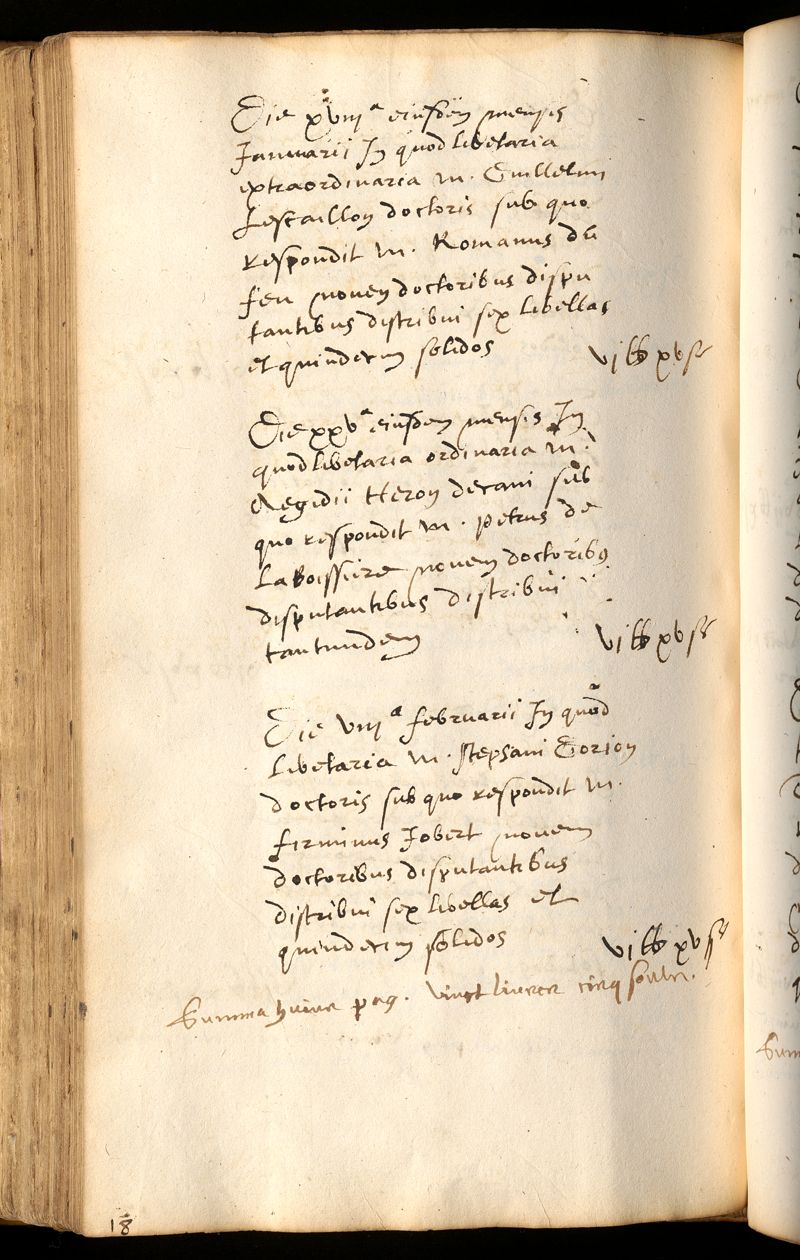 Die xviii a eiusdem mensis
Januarii In quodlibetaria
extraordinaria m. Guillelmi
Lescaillon doctoris sub quo
respondit m. Romanus du
feu novem doctoribus dispu
tantibus distribui sex libellas
et quindecim solidos
vi lb xv s
Die xxv a eiusdem mensis In
quodlibetaria ordinaria m.
Aegidii Heron decani sub
quo respondit m. petrus de
LaBoissiere novem doctoribus
disputantibus distribui
tantundem
vi lb xv s
Die viii a februarii In quod
libetaria m. stephani Gorion
doctoris sub quo respondit m.
firminus Jobert novem
doctoribus disputantibus
distribui sex libellas et
quindecim solidos
vi lb xv s
Summa huius pag. vingt livres cinq soulz.
18
Sum